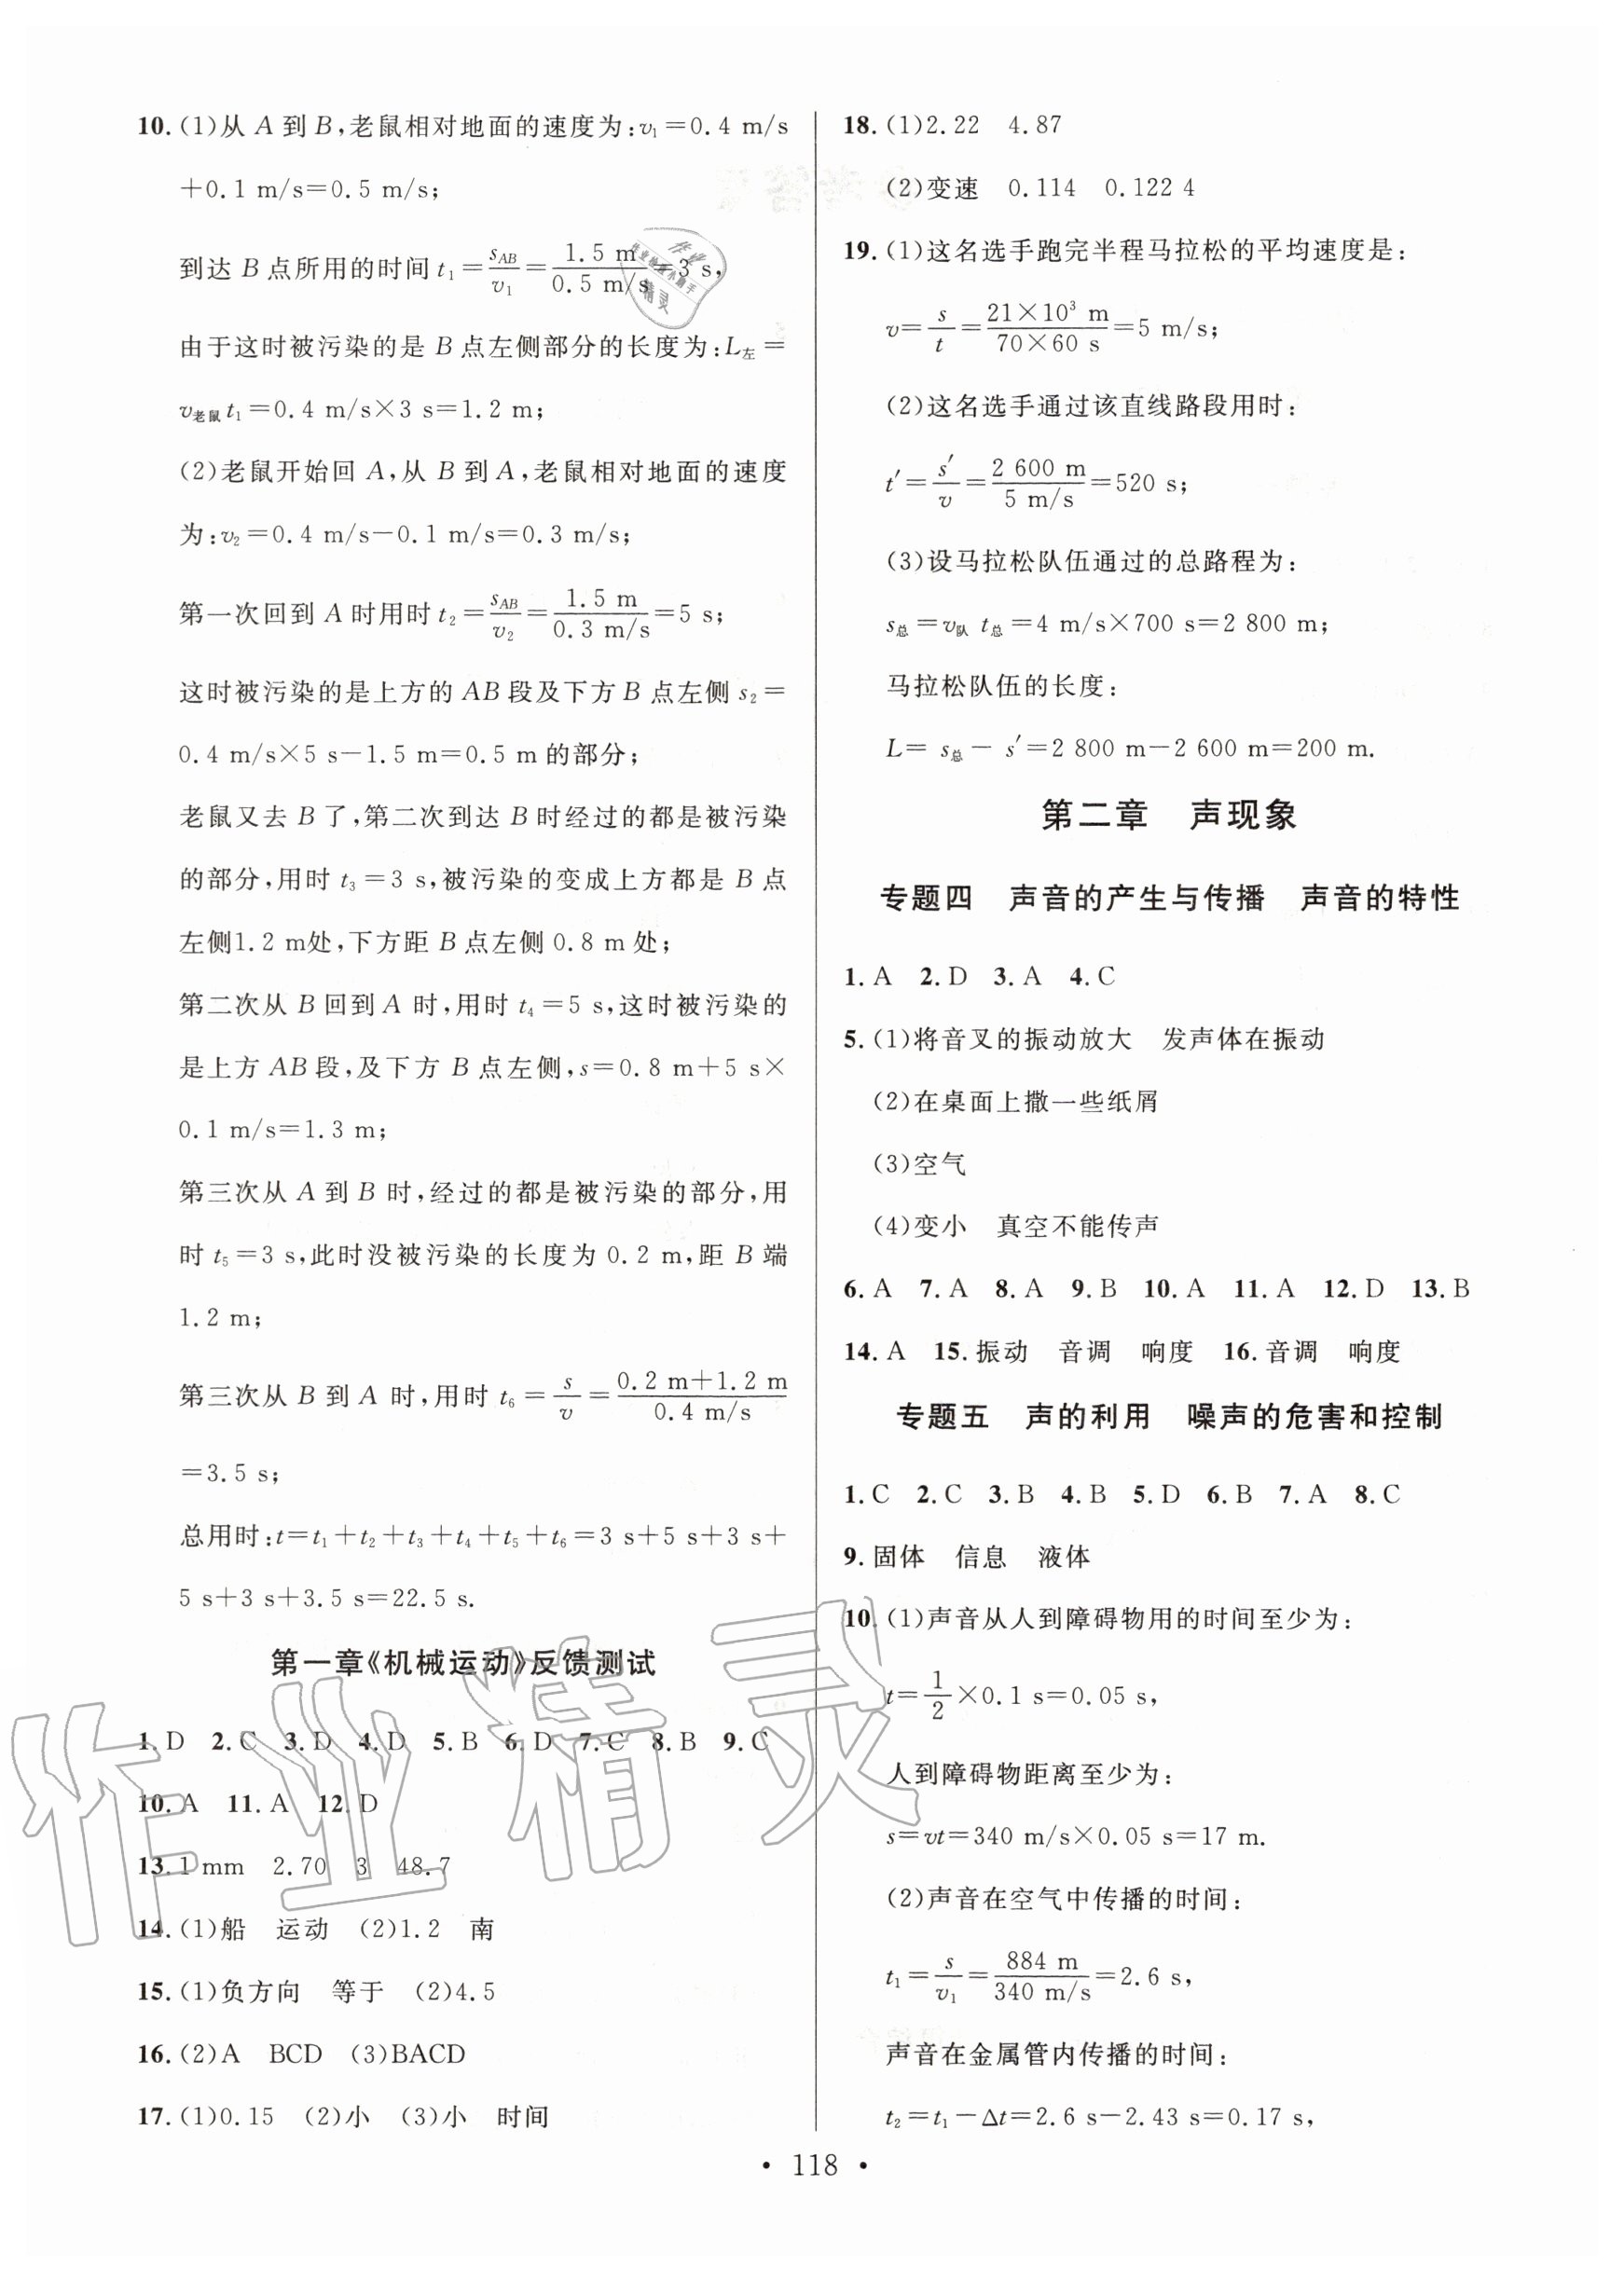 10. (1)从 A 到 B,老鼠相对地面的速度为:v₁=0.4 m/s
+0.1 m/s=0.5 m/s;
到达 B 点所用的时间 t₁=s_AB/v₁=1.5 m/0.5 m/s=3 s,
由于这时被污染的是 B 点左侧部分的长度为:L左=
v老鼠 t₁=0.4 m/s×3 s=1.2 m;
(2)老鼠开始回 A,从 B 到 A,老鼠相对地面的速度
为:v₂=0.4 m/s-0.1 m/s=0.3 m/s;
第一次回到 A 时用时 t₂=s_AB/v₂=1.5 m/0.3 m/s=5 s;
这时被污染的是上方的 AB 段及下方 B 点左侧 s₂=
0.4 m/s×5 s-1.5 m=0.5 m 的部分;
老鼠又去 B 了,第二次到达 B 时经过的都是被污染
的部分,用时 t₃=3 s,被污染的变成上方都是 B 点
左侧1.2 m处,下方距 B 点左侧 0.8 m 处;
第二次从 B 回到 A 时,用时 t₄=5 s,这时被污染的
是上方 AB 段,及下方 B 点左侧,s=0.8 m+5 s×
0.1 m/s=1.3 m;
第三次从 A 到 B 时,经过的都是被污染的部分,用
时 t₅=3 s,此时没被污染的长度为 0.2 m,距 B 端
1.2 m;
第三次从 B 到 A 时,用时 t₆=s/v=0.2 m+1.2 m/0.4 m/s
=3.5 s;
总用时:t=t₁+t₂+t₃+t₄+t₅+t₆=3 s+5 s+3 s+
5 s+3 s+3.5 s=22.5 s.
第一章《机械运动》反馈测试
1. D 2. C 3. D 4. D 5. B 6. D 7. C 8. B 9. C
10. A 11. A 12. D
13. 1 mm 2.70 3 48.7
14. (1)船 运动 (2)1.2 南
15. (1)负方向 等于 (2)4.5
16. (2)A BCD (3)BACD
17. (1)0.15 (2)小 (3)小 时间
18. (1)2.22 4.87
(2)变速 0.114 0.122 4
19. (1)这名选手跑完半程马拉松的平均速度是:
v=s/t=21×10³ m/70×60 s=5 m/s;
(2)这名选手通过该直线路段用时:
t′=s′/v=2 600 m/5 m/s=520 s;
(3)设马拉松队伍通过的总路程为:
s总=v队 t总=4 m/s×700 s=2 800 m;
马拉松队伍的长度:
L= s总- s′=2 800 m-2 600 m=200 m.
第二章 声现象
专题四 声音的产生与传播 声音的特性
1. A 2. D 3. A 4. C
5. (1)将音叉的振动放大 发声体在振动
(2)在桌面上撒一些纸屑
(3)空气
(4)变小 真空不能传声
6. A 7. A 8. A 9. B 10. A 11. A 12. D 13. B
14. A 15. 振动 音调 响度 16. 音调 响度
专题五 声的利用 噪声的危害和控制
1. C 2. C 3. B 4. B 5. D 6. B 7. A 8. C
9. 固体 信息 液体
10. (1)声音从人到障碍物用的时间至少为:
t=1/2×0.1 s=0.05 s,
人到障碍物距离至少为:
s=vt=340 m/s×0.05 s=17 m.
(2)声音在空气中传播的时间:
t₁=s/v₁=884 m/340 m/s=2.6 s,
声音在金属管内传播的时间:
t₂=t₁-Δt=2.6 s-2.43 s=0.17 s,
• 118 •
作业精灵